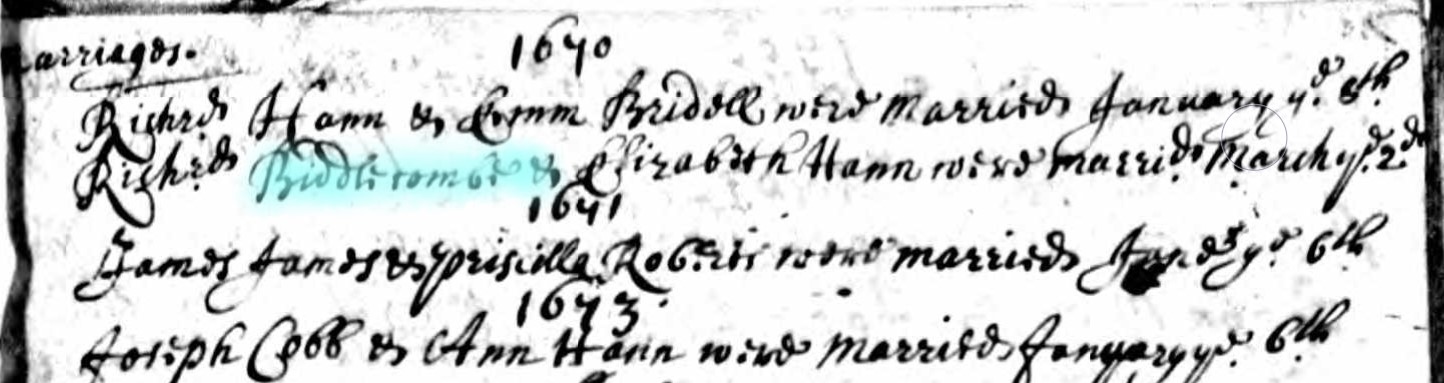 arriages.
1670
Richrd Hann & Emm Bridell were Married January ye 8th
Richrd Biddlecombe & Elizabeth Hann were marrid March ye 2d
1671
James James & Priscilla Roberts were married June ye 6th
1673.
Joseph Cobb & Ann Hann were Married January ye 6th